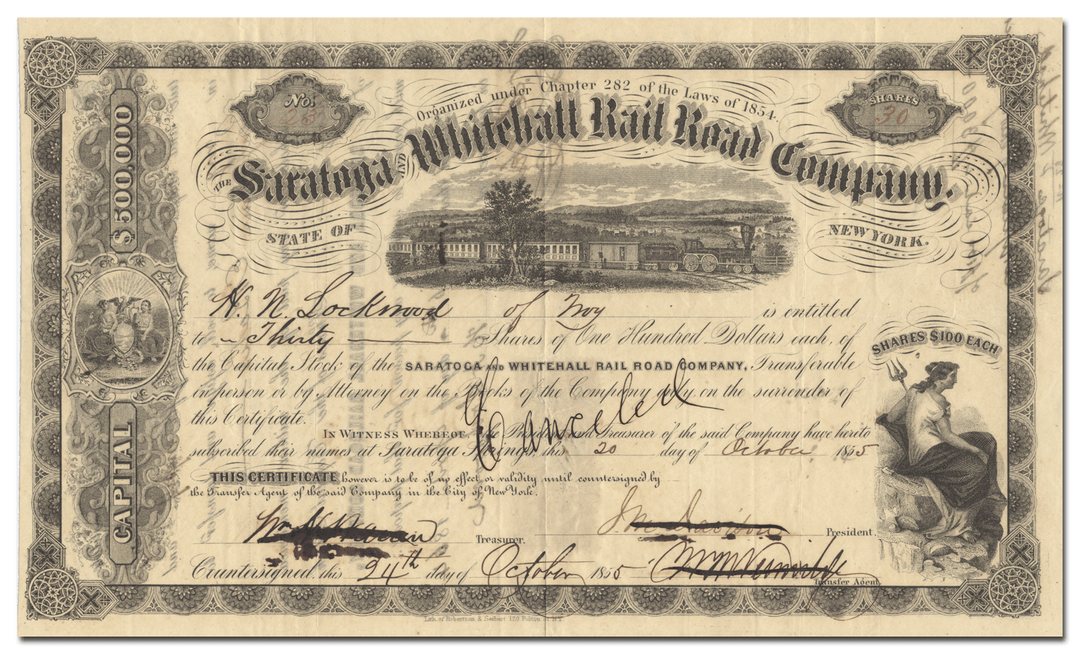 Organized under Chapter 282 of the Laws of 1854.
No.
SHARES
30
THE Saratoga AND Whitehall Rail Road Company.
STATE OF NEW YORK.
$500,000
CAPITAL
H. N. Lockwood of Troy is entitled
to Thirty Shares of One Hundred Dollars each, of
the Capital Stock of the SARATOGA AND WHITEHALL RAIL ROAD COMPANY, Transferable
in person or by Attorney on the Books of the Company only on the surrender of
this Certificate.
Canceled
SHARES $100 EACH
IN WITNESS WHEREOF the President and Treasurer of the said Company have hereto
subscribed their names at Saratoga Springs, this 20 day of October 1855
THIS CERTIFICATE however is to be of no effect or validity until countersigned by
the Transfer Agent of the said Company in the City of New York.
Treasurer.
President.
Countersigned, this 24th day of October 1855
Transfer Agent.
Lith. of Robertson & Seibert 150 Fulton St. N.Y.